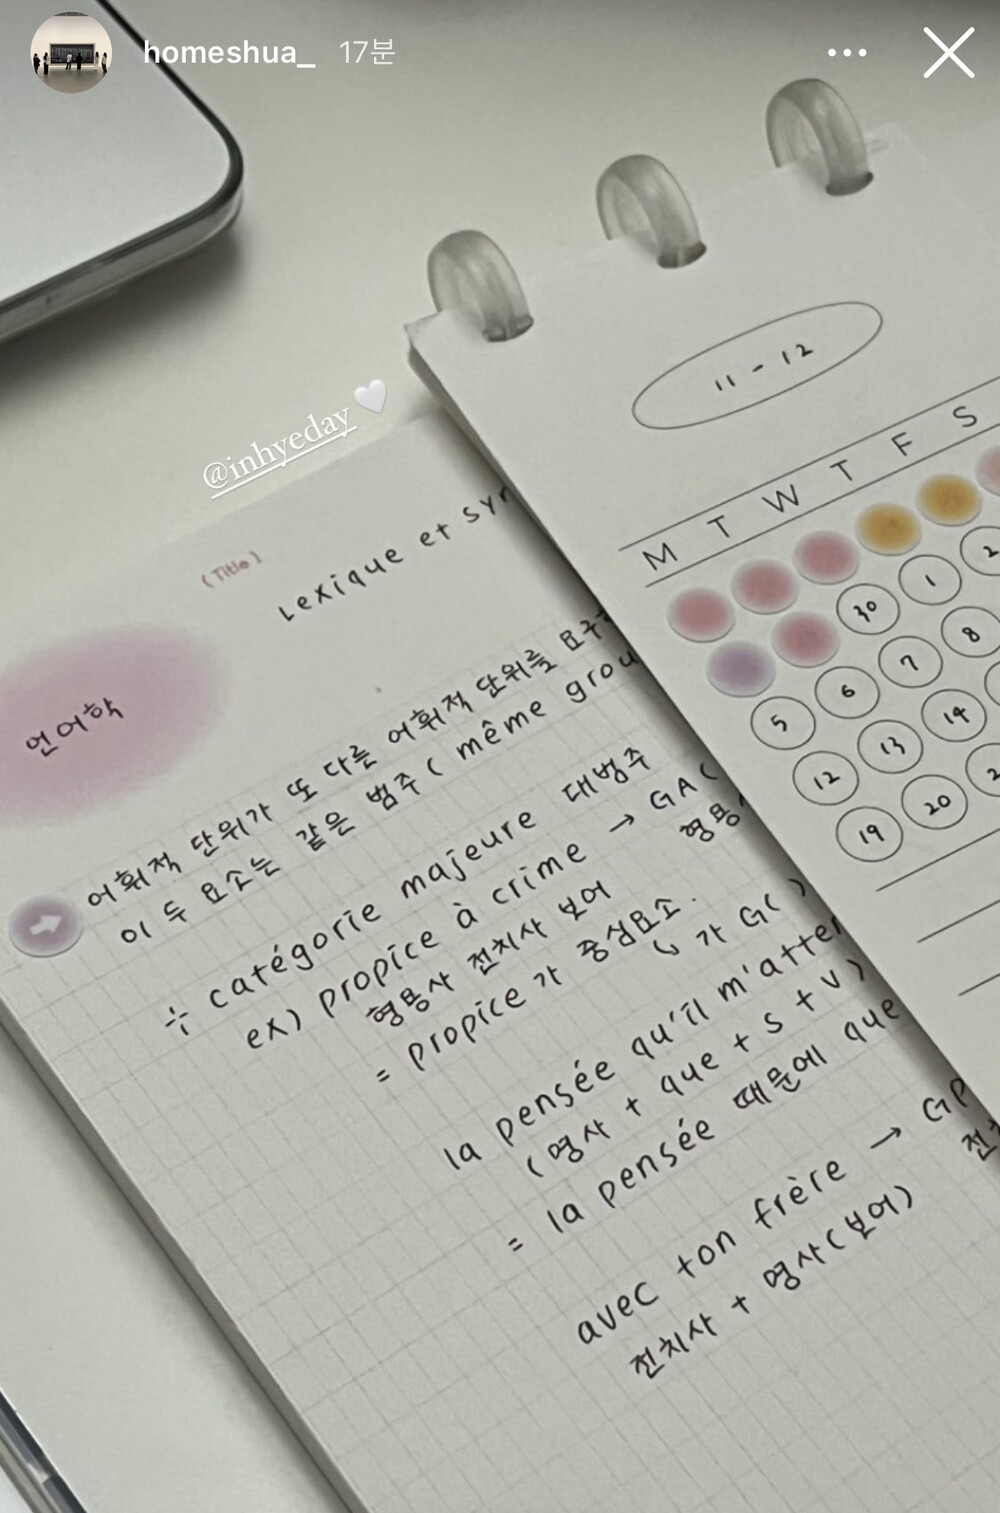 homeshua_ 17분
@inhyeday
(Title)
Lexique et
언어학
어휘적 단위가 또 다른 어휘적 단위를
이 두 요소는 같은 범주 ( même
÷ catégorie majeure 대범주
ex) propice à crime → GA (
형용사 전치사 보어
= propice 가 중심요소.
↳ 가 G( )
la pensée qu'il
(명사 + que + S + V)
= la pensée 때문에 que
avec ton frère → GP
전치사 + 명사(보어)
11 - 12
M T W T F S
30 1 2
5 6 7 8
12 13 14
19 20